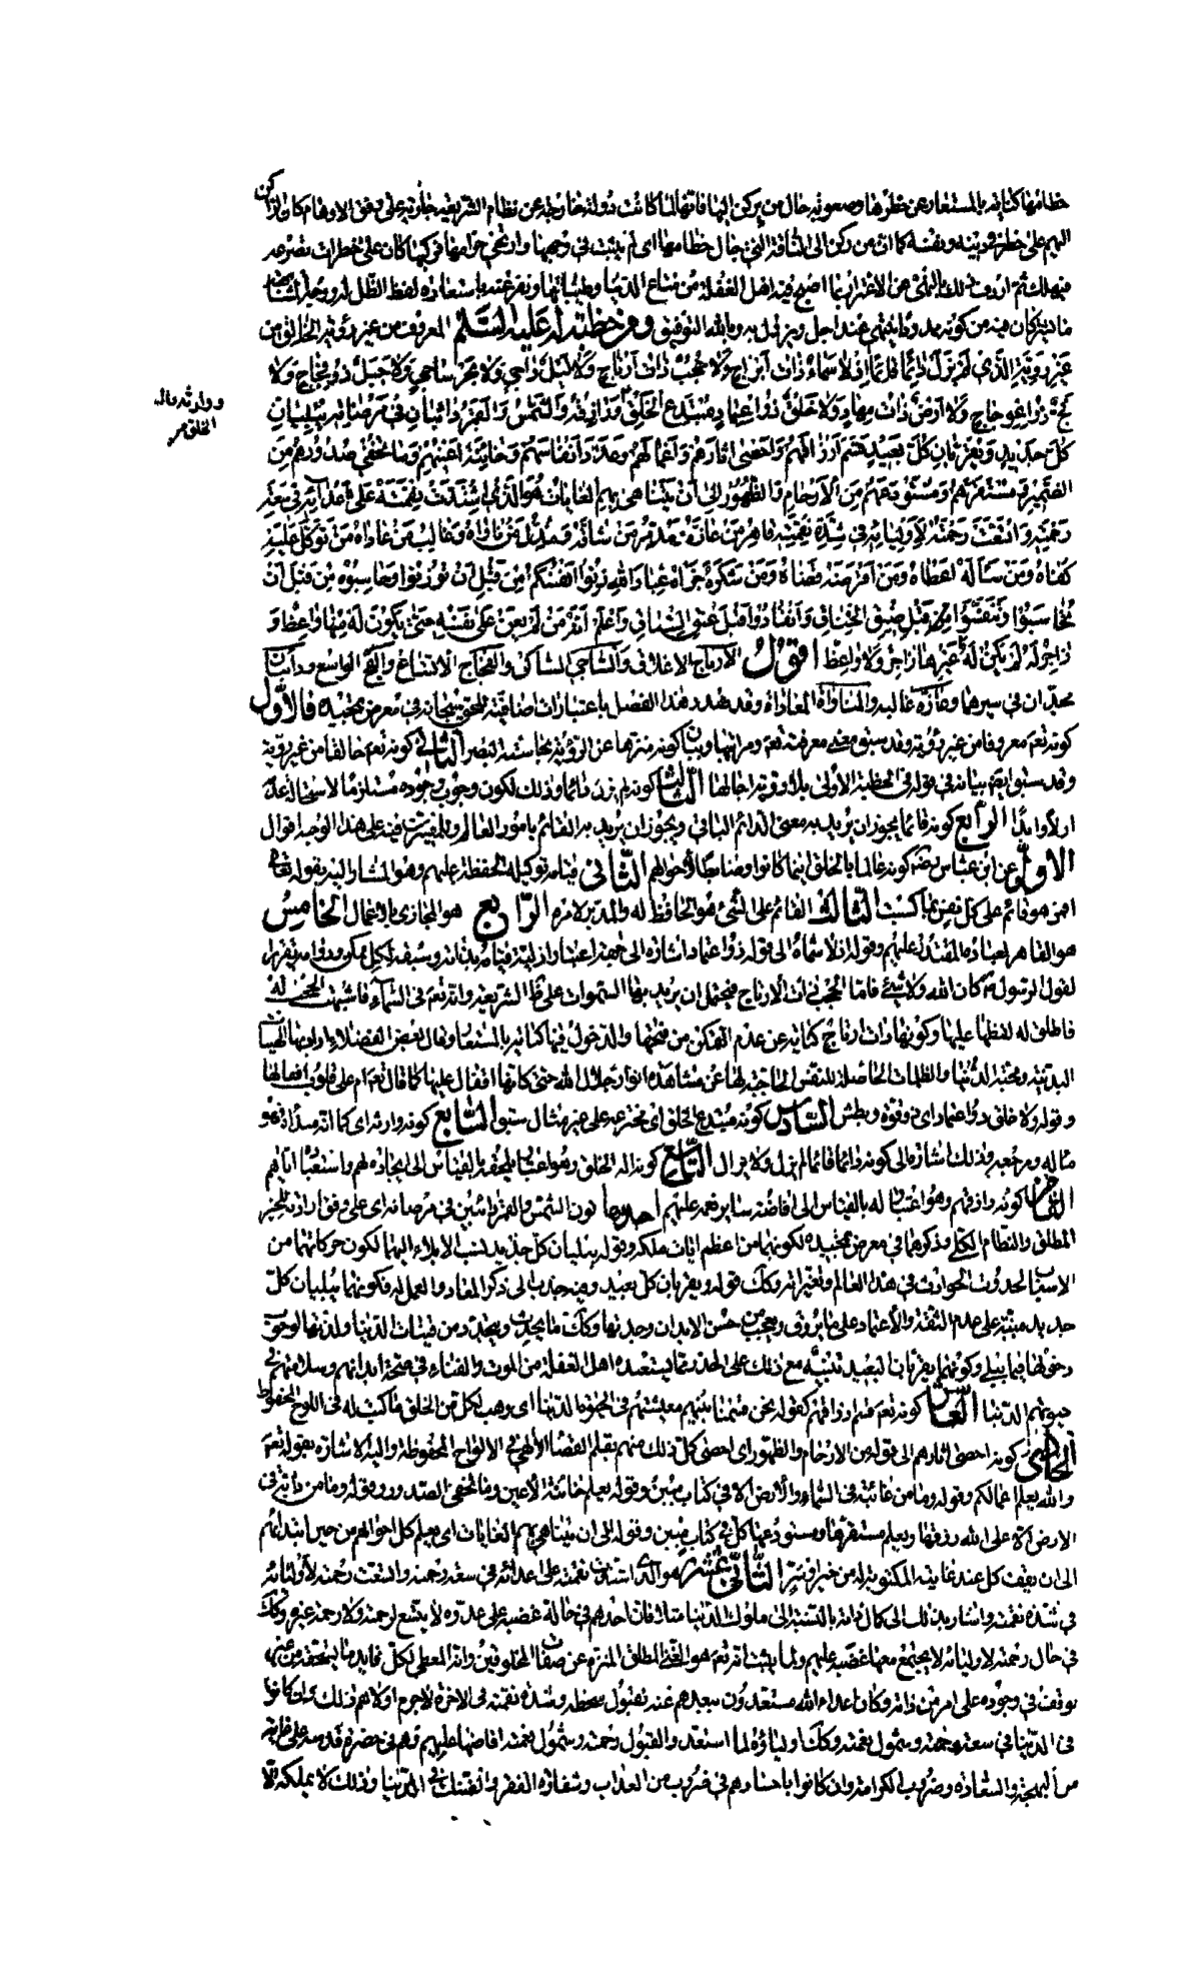 خطامها كناية بالمستعار عن خطرها وصعوبة حال من يركن اليها فانها لما كانت دولة خارجة عن نظام الشريعة جارية على وفق الاوهام كان الراكن
اليهم على خطر في دينه ونفسه كما ان من ركن الى الناقة التي جال خطامها اى لم يثبت في وجهها وارتخى حزامها فركبها كان على خطر ان تصرعه
فيهلك ثم اردف ذلك بالنهى عن الاغترار بما اصبح فيه اهل الغفلة من متاع الدنيا وطيباتها ونفر عنه باستعارة لفظ الظل له
ما كان فيه من كونه ممدودا ينتهى عند اجل ويزول به وبالله التوفيق ومن خطبة له عليه السلم المعروف من غير رؤية الخالق من
غير روية الذي لم يزل دائما قائما اذ لا سماء ذات ابراج ولا حجب ذات ارتاج ولا ليل داج ولا بحر ساج ولا جبل ذو فجاج ولا
فج ذو اعوجاج ولا ارض ذات مهاد ولا خلق ذو اعتماد مبتدع الخلق ورازقه والشمس والقمر دائبان في مرضاته يبليان
ووارثه واله
الخلق
كل جديد ويقربان كل بعيد قسم ارزاقهم واحصى اثارهم واعمالهم وعدد انفاسهم وخاينة اعينهم وما تخفى صدورهم من
الضمير ومستقرهم ومستودعهم من الارحام والظهور الى ان تتناهى بهم الغايات هو الذي اشتدت نقمته على اعدائه في سعة
رحمته واتسعت رحمته لاوليائه في شدة نقمته قاهر من عازه مدمر من شاقه ومذل من ناواه وغالب من عاداه من توكل عليه
كفاه ومن سأله اعطاه ومن اقرضه قضاه ومن شكره جزاه عباد الله زنوا انفسكم من قبل ان توزنوا وحاسبوها من قبل ان
تحاسبوا وتنفسوا من قبل ضيق الخناق وانقادوا قبل عنف السياق واعلم انه من لم يعن على نفسه حتى يكون له منها واعظ و
زاجر لم يكن له من غيرها زاجر ولا واعظ اقول الارتاج الاغلاق والساجي الساكن والفجاج الاتساع والفج الواسع ودائبان
مجدان في سيرهما وعازه غالبه والمناواة المعاداة وقد هذا الفصل باعتبارات اضافية للحق سبحانه في معرض تمجيده فالاول
كونه تعم معروفا من غير رؤية وقد سبق معنى معرفته تعم ومراتبها وبيان كونه منزها عن الرؤية بحاسة البصر الثاني كونه تعم خالقا من غير روية
وقد سبق ايضا بيانه في قوله في الخطبة الاولى بلا روية اجالها الثالث كونه لم يزل دائما وذلك لكون وجوب وجوده مستلزما لاستحالة عدمه
ازلا وابدا الرابع كونه قائما يجوز ان يريد به معنى الدائم الباقي ويجوز ان يريد به القائم بامور العالم وللمفسرين فيه على هذا الوجه اقوال
الاول عن ابن عباس رضه كونه عالما بالخلق اينما كانوا وضابطا لاحوالهم الثاني قيامه توكيله الحفظة عليهم وهو المشار اليه بقوله تعالى
افمن هو قائم على كل نفس بما كسبت الثالث القائم على الشيء هو الحافظ له والمدبر لامره الرابع هو المجازى بالاعمال الخامس
هو القاهر لعباده المقتدر عليهم وقوله اذ لا سماء الى قوله ذو اعتماد اشارة الى جهة اعتبار ازلية قيامه بذاته وسبقه لكل ممكن
لقول الرسول صم كان الله ولا شيء فاما الحجب ذات الارتاج فيحتمل ان يريد بها السموات على ظاهر الشريعة وانه تعم في السماء فاشبهت الحجب له
فاطلق له لفظها عليها وكونها ذات ارتاج كناية عن عدم التمكن من فتحها والدخول فيها كناية بالمستعار وقال بعض الفضلاء اراد بها الهيئات
البدنية ومحبة الدنيا والظلمات الحاصلة للنفس الحاجبة لها عن مشاهدة انوار جلال الله حتى كانها اقفال عليها كما قال تعم ام على قلوب اقفالها
وقوله ولا خلق ذو اعتماد اى ذو قوة وبطش السادس كونه مبتدع الخلق اى مخترعه على غير مثال سبق السابع كونه وارثه اى كما انه مبدأه فهو
مآله ومرجعه وذلك اشارة الى كونه دائما قائما لم يزل ولا يزال كونه اله الخلق وهو اعتبار يلحقه بالقياس الى ايجاده لهم واستعباده اياهم
كونه رازقهم وهو اعتبار له بالقياس الى افاضته ساير نعمه عليهم احدها كون الشمس والقمر دائبين في مرضاته اى على وفق ارادته للخير
المطلق والنظام الكلى وذكرهما في معرض تمجيده لكونهما من اعظم ايات ملكه وقوله يبليان كل جديد نسب الابلاء اليهما لكون حركاتهما من
الاسباب لحدوث الحوادث في هذا العالم وتغيراته وكك قوله ويقربان كل بعيد وفيه جذب الى ذكر المعاد والعمل له فكونهما يبليان كل
جديد منبه على عدم الثقة والاعتماد على ما يروق ويعجب من حسن الابدان وجديدها وكك ما يحدث ويتجدد من قينات الدنيا ولذتها لوجوب
دخولها فيما يبلى وكونهما يقربان البعيد تنبيه مع ذلك على الحذر مما يستبعده اهل الغفلة من الموت والفناء في صحة ابدانهم وسلامتهم في
حيوتهم الدنيا العاشر كونه تعم قسم ارزاقهم كقوله نحن قسمنا بينهم معيشتهم في الحيوة الدنيا اى وهب لكل من الخلق ما كتب له في اللوح المحفوظ
الحادى كونه احصى اثارهم الى قوله من الارحام والظهور اى احصى كل ذلك منهم بقلم القضاء الالهي في الالواح المحفوظة واليه الاشارة بقوله تعم
والله يعلم اعمالكم وقوله وما من غائبة في السماء والارض الا في كتاب مبين وقوله يعلم خائنة الاعين وما تخفى الصدور وقوله وما من دابة في
الارض الا على الله رزقها ويعلم مستقرها ومستودعها كل في كتاب مبين وقوله الى ان تتناهى بهم الغايات اى يعلم كل احوالهم من حين ابتدائهم
الى ان يقف كل عند غايته المكتوبة له من خير او شر الثاني عشر هو الذي اشتدت نقمته على اعدائه في سعة رحمته واتسعت رحمته لاوليائه
في شدة نقمته واشار بذلك الى كمال ذاته بالنسبة الى ملوك الدنيا مثلا فان احدهم في حالة غضبه على عدوه لا يتسع لرحمته ولا رحمة غيره وكك
في حال رحمته لاوليائه لا يجتمع معها غضبه عليهم ولما يثبت انه تعم هو الغنى المطلق المنزه عن صفات المخلوقين وانه المعطى لكل قابل ما يستحقه من غير
توقف في وجوده على امر من ذاته وكان اعداء الله مستعدون ببعدهم عنه لقبول سخطه وشدة نقمته في الاخرة لاجرم اولاهم ذلك وان كانوا
في الدنيا في سعة رحمته وشمول نعمته وكك اولياؤه لما استعدوا لقبول رحمته وشمول نعمته افاضها عليهم فهم في حضرة قدسه على غاية
من البهجة والسعادة وضروب الكرامة وان كانوا باجسادهم في ضروب من العذاب وشقاوة الفقر والضنك في الدنيا وذلك لا يملكه الا